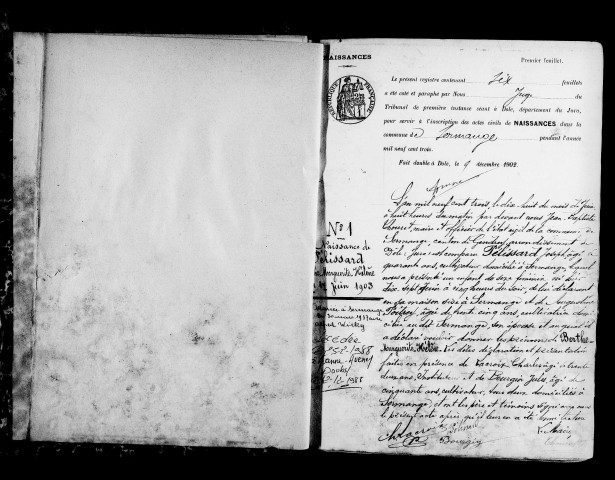 NAISSANCES
Premier feuillet.
Le présent registre contenant six feuillets
a été coté et paraphé par Nous Juge du
Tribunal de première instance séant à Dole, département du Jura,
pour servir à l'inscription des actes civils de NAISSANCES dans la
commune de Sermange pendant l'année
mil neuf cent trois.
Fait double à Dole, le 9 décembre 1902.
RÉPUBLIQUE FRANÇAISE
N° 1
Naissance de
Pélissard
Marguerite Hélène
juin 1903
L'an mil neuf cent trois, le dix-huit du mois de Juin
à huit heures du matin par devant nous Jean Baptiste
maire et officier de l'état civil de la commune de
Sermange, canton de Gendrey, arrondissement de
Dole, Jura est comparu Pélissard Joseph âgé de
quarante ans, cultivateur domicilié à Sermange, lequel
nous a présenté un enfant de sexe féminin né le
dix sept Juin à cinq heures du soir, de lui déclarant
en sa maison sise à Sermange et de Augustine
âgée de trente cinq ans, cultivatrice
audit Sermange, son épouse et auquel il
a déclaré vouloir donner les prénoms de Berthe
Marguerite Hélène. Les dites déclaration et présentation
faites en présence de Lacroix Charles âgé de trente
deux ans, Instituteur et de Bourgin Jules, âgé de
cinquante ans, cultivateur, tous deux domiciliés à
Sermange, et ont les père et témoins signé avec nous
le présent acte après qu'il leur en a été donné lecture
Décédée
Le Maire
Ch Lacroix
Bourgin